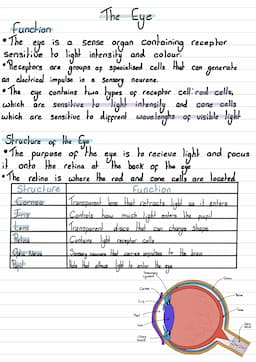 The Eye
Function
• The eye is a sense organ containing receptor
sensitive to light intensity and colour.
• Receptors are groups of specialised cells that can generate
an electrical impulse in a sensory neurone.
• The eye contains two types of receptor cell: rod cells,
which are sensitive to light intensity and cone cells
which are sensitive to different wavelengths of visible light
Structure of the Eye
• The purpose of the eye is to recieve light and focus
it onto the retina at the back of the eye
• The retina is where the rod and cone cells are located
Structure Function
Cornea Transparent lens that refracts light as it enters
Iris Controls how much light enters the pupil
Lens Transparent disc that can change shape
Retina Contains light receptor cells
Optic Nerve Sensory neurone that carries impulses to the brain
Pupil Hole that allows light to enter the eye
Cornea
Iris
Pupil
Lens